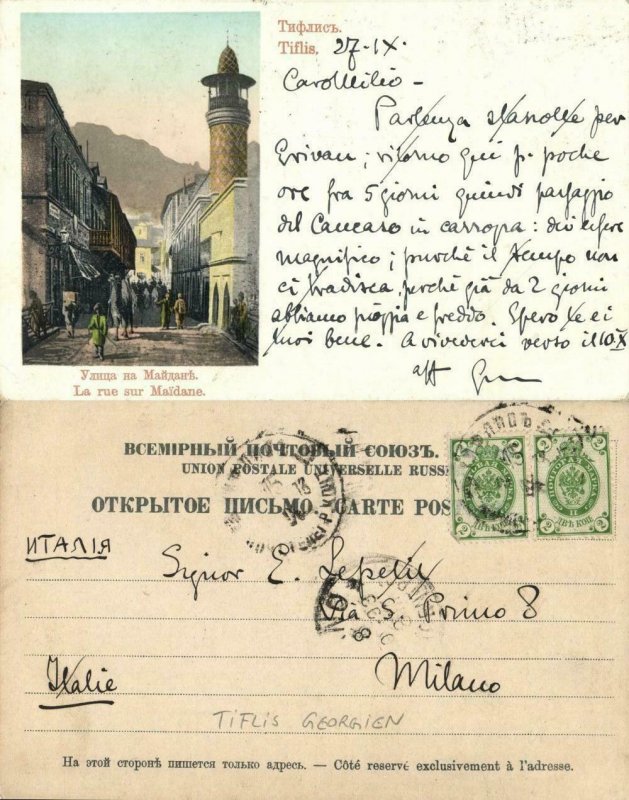 Тифлисъ.
Tiflis. 27-IX.
Caro Emilio -
Partenza stanotte per
Erivan; ritorno qui p. poche
ore fra 5 giorni quindi passaggio
del Caucaso in carrozza: dev'essere
magnifico; purché il tempo non
ci tradisca, perché già da 2 giorni
abbiamo pioggia e freddo. Spero te ei
tuoi bene. A rivederci verso il 10 X
aff
Улица на Майданѣ.
La rue sur Maïdane.
ВСЕМІРНЫЙ ПОЧТОВЫЙ СОЮЗЪ.
UNION POSTALE UNIVERSELLE RUSSIE
ОТКРЫТОЕ ПИСЬМО. CARTE POS
2 2 2 2
ДВѢ КОП. ДВѢ КОП.
ИТАЛІЯ
Signor E. Lepetit
Via S. Primo 8
Italie
Milano
TIFLIS GEORGIEN
На этой сторонѣ пишется только адресъ. — Côté reservé exclusivement à l'adresse.